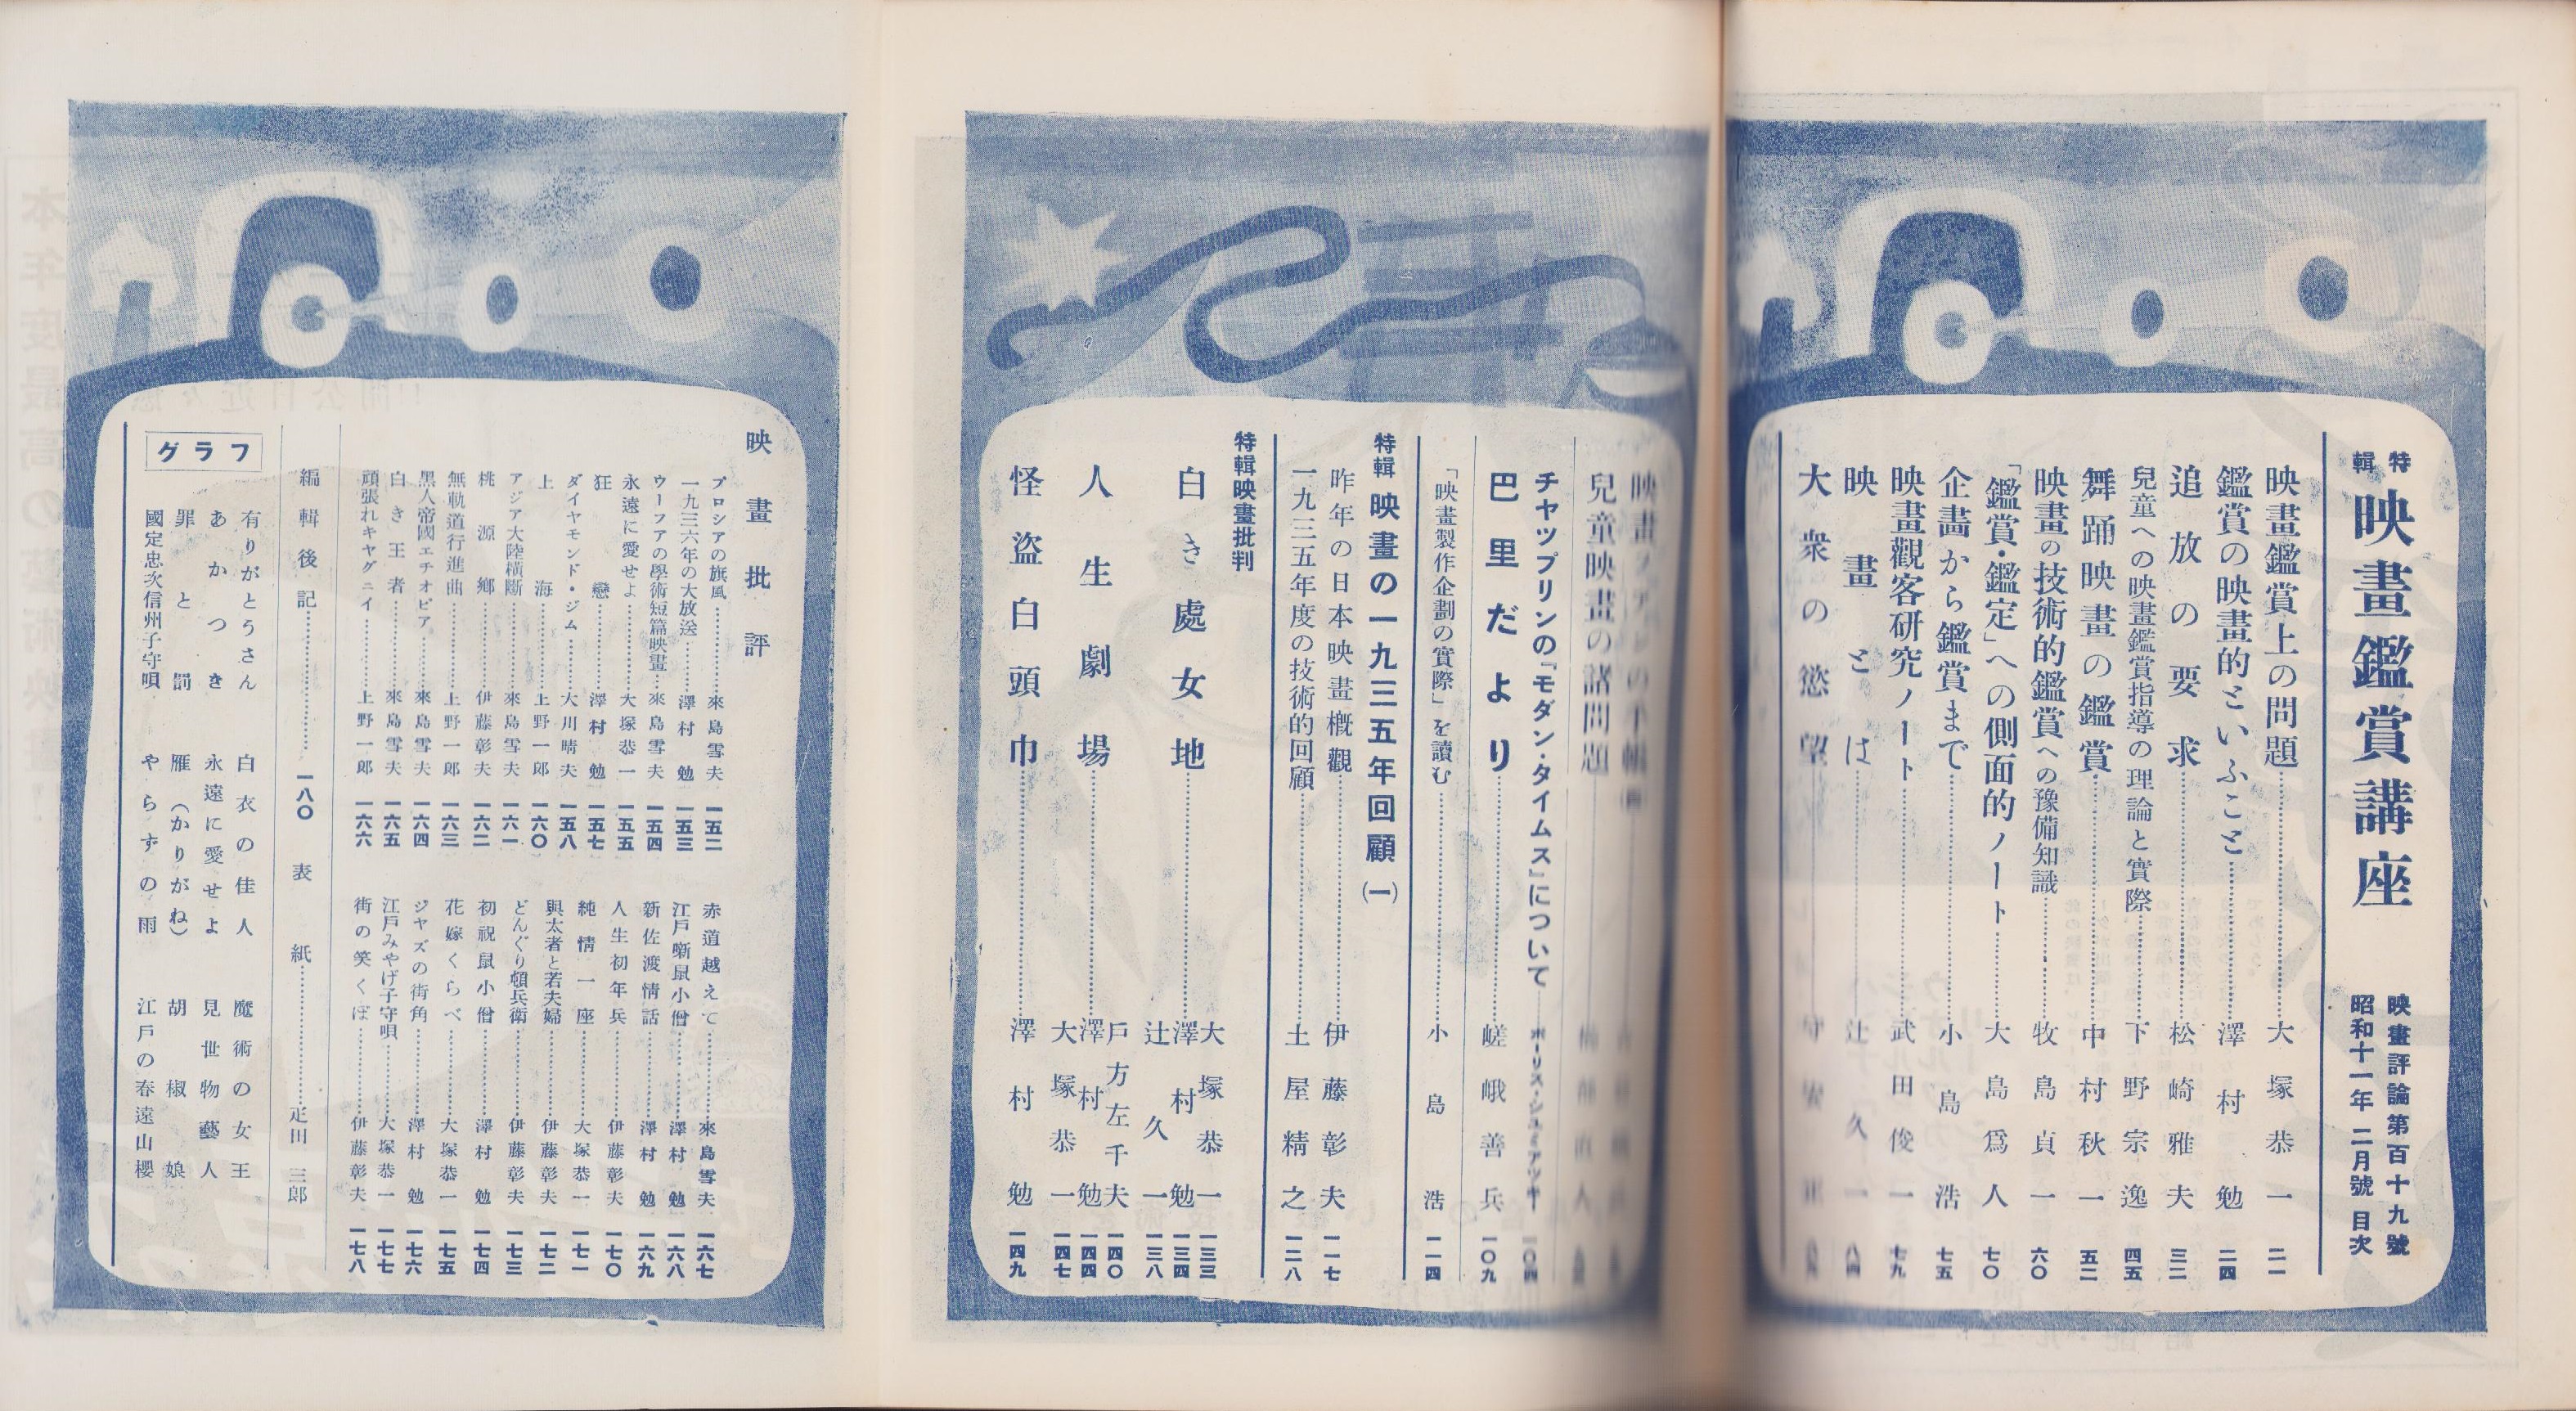 特輯 映畫鑑賞講座
映畫評論第百十九號
昭和十一年 二月號 目次
映畫鑑賞上の問題 大塚恭一 二一
鑑賞の映畫的といふこと 澤村勉 二四
追放の要求 松崎雅夫 三二
兒童への映畫鑑賞指導の理論と實際 下野宗逸 四五
舞踊映畫の鑑賞 中村秋一 五二
映畫の技術的鑑賞への豫備知識 牧島貞一 六〇
「鑑賞・鑑定」への側面的ノート 大島爲人 七〇
企畵から鑑賞まで 小島浩 七五
映畫觀客研究ノート 武田俊一 七九
映畫とは 辻久一
大衆の慾望
兒童映畫の諸問題
チャップリンの『モダン・タイムス』について ボーリス・シュミアツキー 一〇四
巴里だより 嵯峨善兵 一〇九
「映畫製作企劃の實際」を讀む 小島浩 一一四
特輯 映畫の一九三五年回顧(一)
昨年の日本映畫槪觀 伊藤彰夫 一一七
一九三五年度の技術的回顧 土屋精之 一二八
特輯映畫批判
白き處女地 大塚恭一 一三三
澤村勉 一三四
辻久一 一三八
人生劇場 戶方左千夫 一四〇
澤村勉 一四四
大塚恭一 一四七
怪盜白頭巾 澤村勉 一四九
映畫批評
プロシアの旗風 來島雪夫 一五二
一九三六年の大放送 澤村勉 一五三
ウーファの學術短篇映畫 來島雪夫 一五四
永遠に愛せよ 大塚恭一 一五五
狂戀 澤村勉 一五七
ダイヤモンド・ジム 大川晴夫 一五八
上海 上野一郎 一六〇
アジア大陸橫斷 來島雪夫 一六一
桃源鄕 伊藤彰夫 一六二
無軌道行進曲 上野一郎 一六三
黑人帝國エチオピア 來島雪夫 一六四
白き王者 來島雪夫 一六五
頑張れキャグニイ 上野一郎 一六六
赤道越えて 來島雪夫 一六七
江戶噺鼠小僧 澤村勉 一六八
新佐渡情話 澤村勉 一六九
人生初年兵 伊藤彰夫 一七〇
純情一座 大塚恭一 一七一
與太者と若夫婦 伊藤彰夫 一七二
どんぐり頓兵衛 伊藤彰夫 一七三
初祝鼠小僧 澤村勉 一七四
花嫁くらべ 大塚恭一 一七五
ジャズの街角 澤村勉 一七六
江戶みやげ子守唄 大塚恭一 一七七
街の笑くぼ 伊藤彰夫 一七八
編輯後記 一八〇
表紙 疋田三郎
グラフ
有りがとうさん
あかつき
罪と罰
國定忠次信州子守唄
白衣の佳人
永遠に愛せよ
雁(かりがね)
やらずの雨
魔術の女王
見世物藝人
胡椒娘
江戶の春遠山櫻